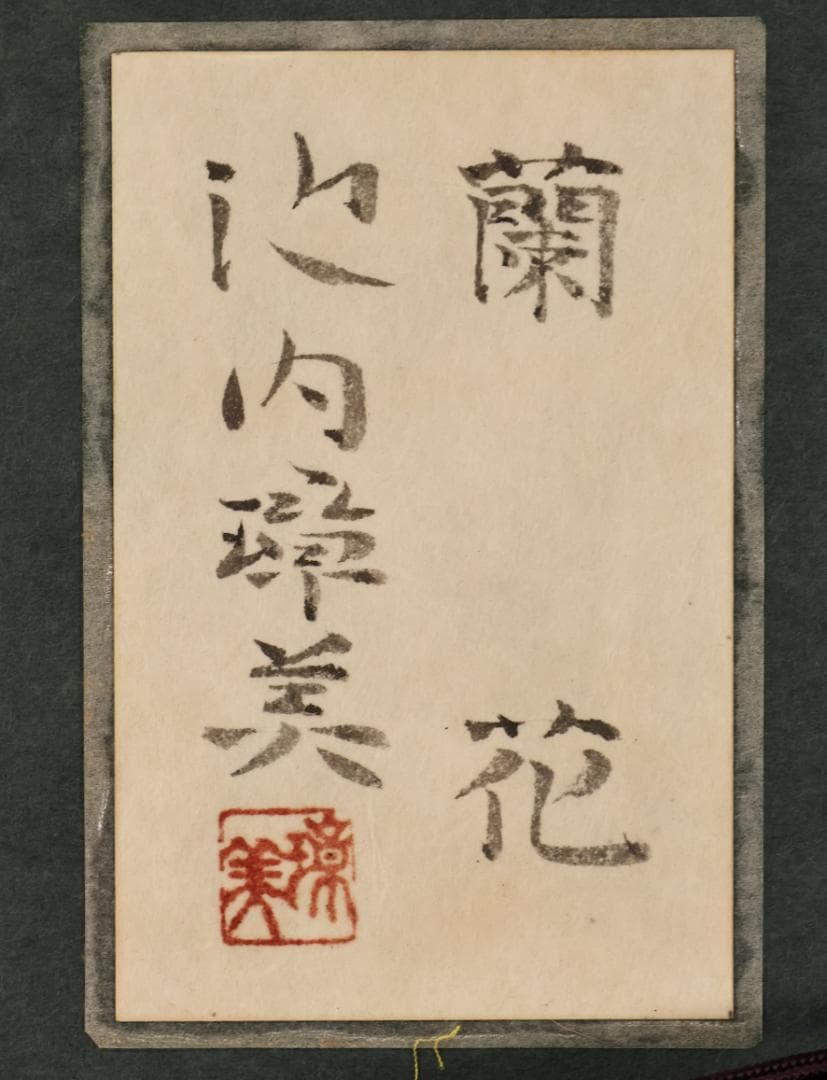 蘭花
池内璋美
璋美